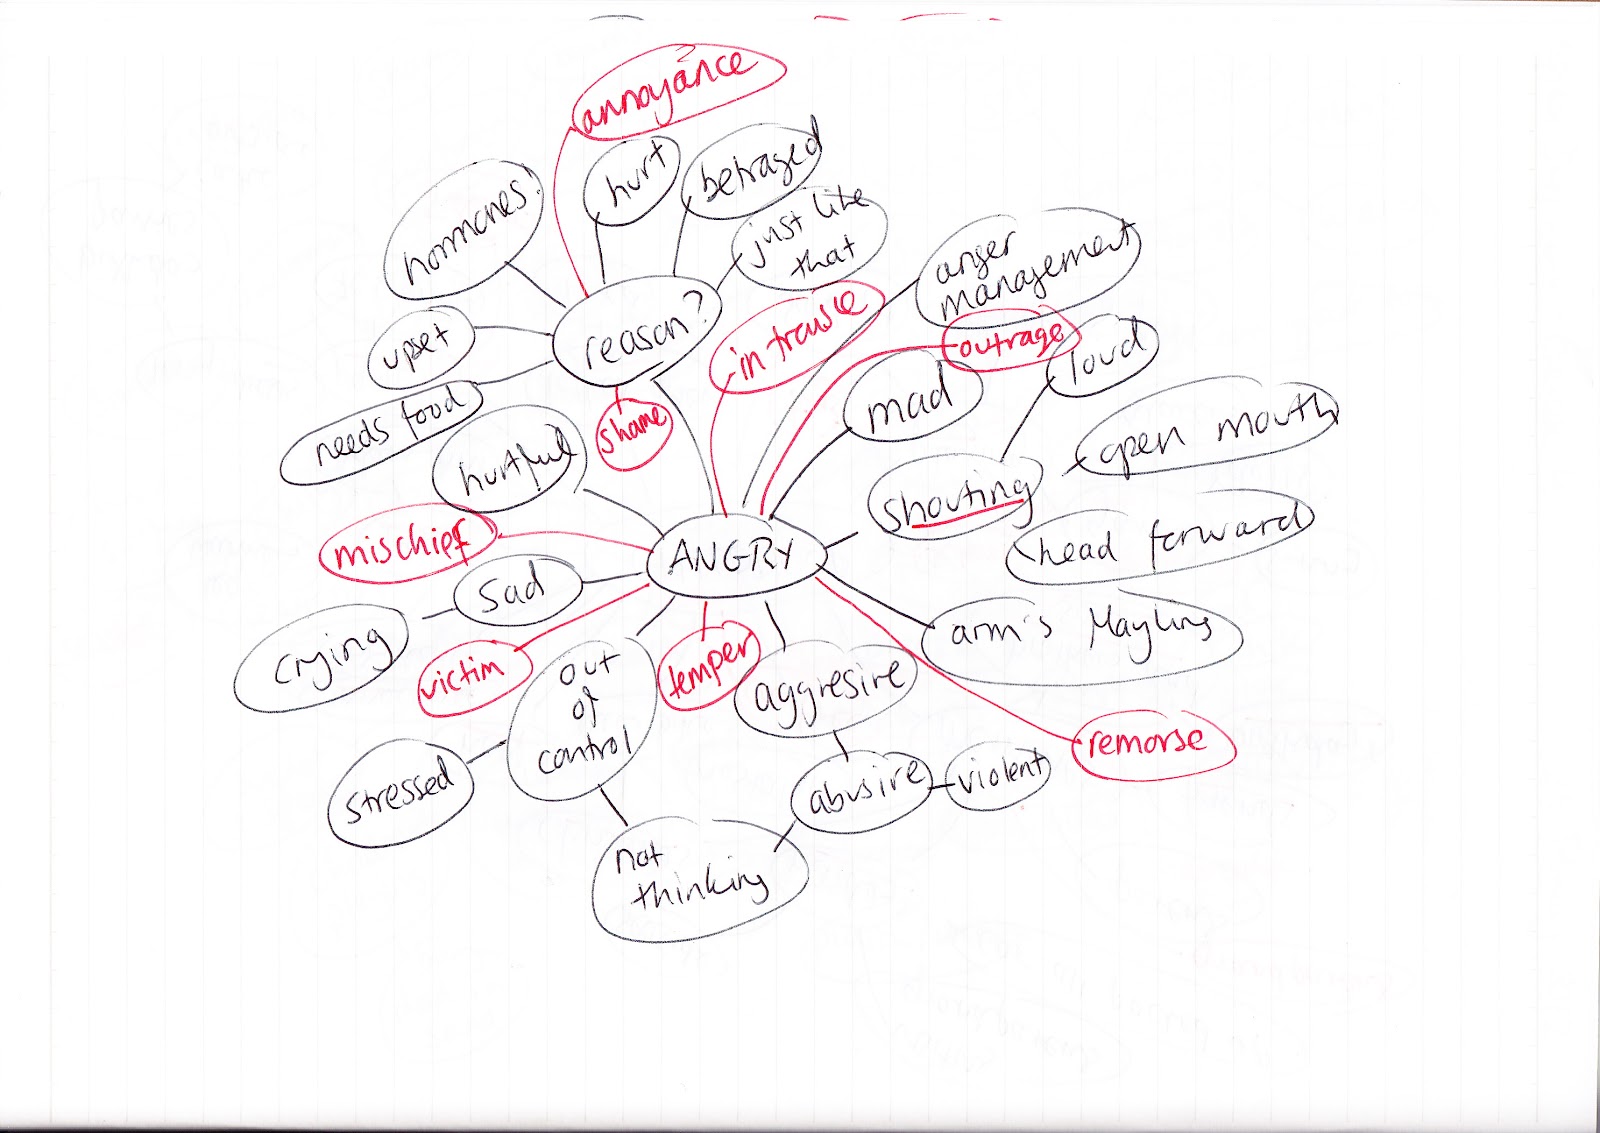 annoyance
hurt
betrayed
hormones!
just like
that
anger
management
upset
reason?
in trouble
outrage
loud
mad
needs food
shame
open mouth
hurtful
shouting
mischief
ANGRY
head forward
sad
arm's
crying
victim
out
of
control
temper
aggresive
remorse
stressed
abusive
violent
not
thinking